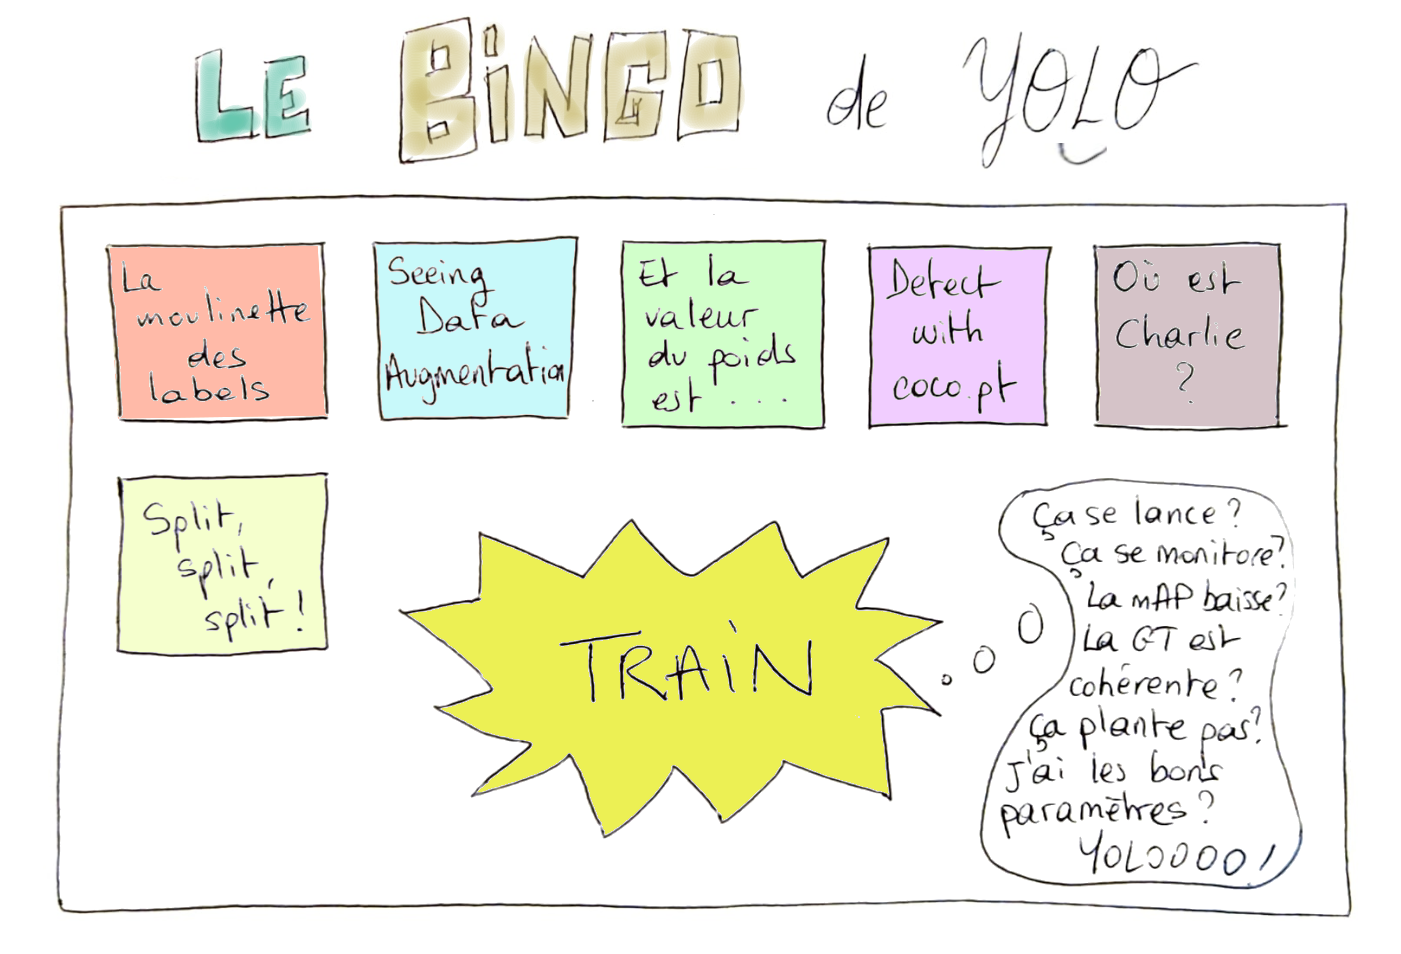 LE BiNGO de YOLO
La
moulinette
des
labels
Seeing
Data
Augmentation
Et la
valeur
du poids
est ...
Detect
with
coco.pt
Où est
Charlie
?
Split,
split,
split !
TRAiN
Ça se lance ?
Ça se monitore ?
La mAP baisse ?
La GT est
cohérente ?
Ça plante pas ?
J'ai les bons
paramètres ?
YOLOOOO !